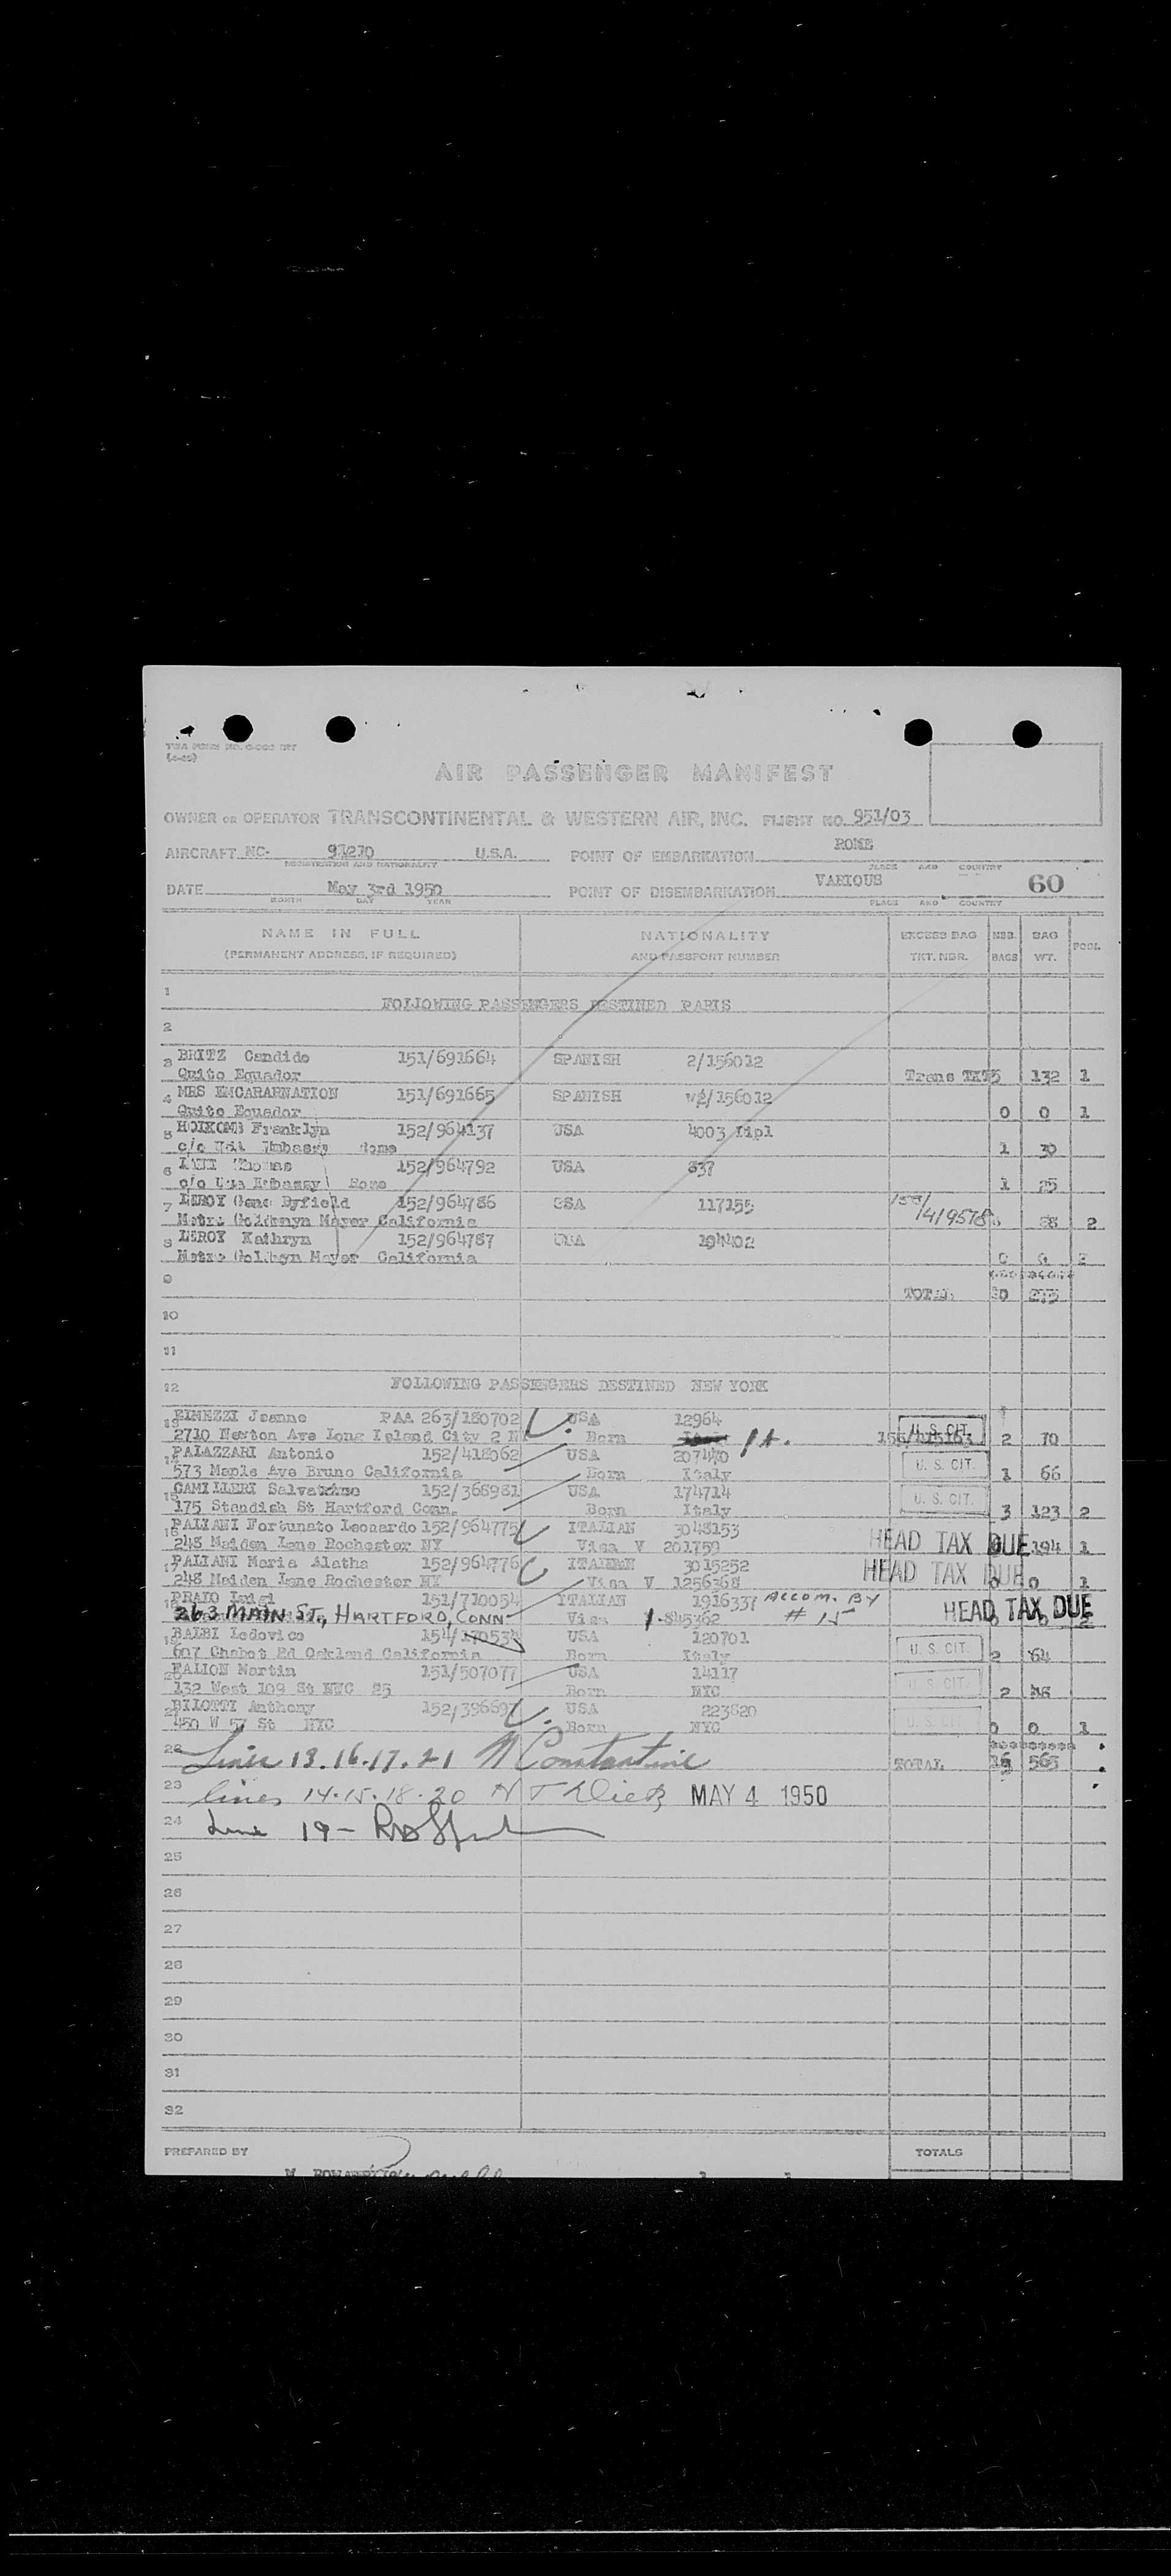 AIR PASSENGER MANIFEST
OWNER OR OPERATOR TRANSCONTINENTAL & WESTERN AIR, INC. FLIGHT NO. 951/03
AIRCRAFT NC- 91210 U.S.A. POINT OF EMBARKATION ROME
REGISTRATION AND NATIONALITY PLACE AND COUNTRY
DATE May 3rd 1950 POINT OF DISEMBARKATION VARIOUS 60
MONTH DAY YEAR PLACE AND COUNTRY
NAME IN FULL NATIONALITY EXCESS BAG NBR. BAG POOL
(PERMANENT ADDRESS, IF REQUIRED) AND PASSPORT NUMBER TKT. NBR. BAGS WT.
1 FOLLOWING PASSENGERS DESTINED PARIS
2
3 BRITZ Candido 151/691664 SPANISH 2/156012
Quito Equador Trans TKT5 132 1
4 MRS ENCARARNATION 151/691665 SPANISH 156012
Quito Equador 0 0 1
5 HOLKOMB Franklyn 152/964137 USA 4003 Dipl
c/o Embassy Rome 1 30
6 Thomas 152/964792 USA 837
c/o Embassy Rome 1 25
7 LEROY Gene Byfield 152/964786 USA 117155
Metro Goldwnyn Mayer California 88 2
8 LEROY Kathryn 152/964787 USA 194402
Metro Goldwyn Mayer California 0 0 2
9
TOTAL 10 275
10
11
12 FOLLOWING PASSENGERS DESTINED NEW YORK
13 RIMEZZI Jeanne PAA 263/180702 USA 12964 U. S. CIT.
2710 Newton Ave Long Island City 2 N Born It. 2 70
14 PALAZZARI Antonio 152/418062 USA 207440 U. S. CIT.
573 Maple Ave Bruno California Born Italy 1 66
15 CAMILLERI 152/368981 USA 174714 U. S. CIT.
175 Standish St Hartford Conn. Born Italy 3 123 2
16 PALIANI Fortunato Leonardo 152/964775 ITALIAN 3048153
248 Maiden Lane Rochester NY Visa V 201759 HEAD TAX DUE 194 1
17 PALIANI Maria Alatha 152/964776 ITALIAN 3015252 HEAD TAX DUE
248 Maiden Lane Rochester NY Visa V 1256368 0 0 1
18 PRAIO Luigi 151/710054 ITALIAN 1916337 ACCOM. BY
263 MAIN ST., HARTFORD, CONN Visa 1-845362 # 15 HEAD TAX DUE
19 BALBI Lodovico 154/170534 USA 120701 U. S. CIT.
607 Chabot Rd Oakland California Born Italy 2 64
20 FALION Martin 151/507077 USA 14117 U. S. CIT.
132 West 109 St NYC 25 Born NYC 2 48
21 BILOTTI Anthony 152/396697 USA 223820 U. S. CIT.
450 W 57 St NYC Born NYC 0 0 1
22 Lines 13.16.17.21 N Constantine TOTAL 16 565
23 lines 14.15.18.20 MAY 4 1950
24 Line 19 -
25
26
27
28
29
30
31
32
PREPARED BY TOTALS